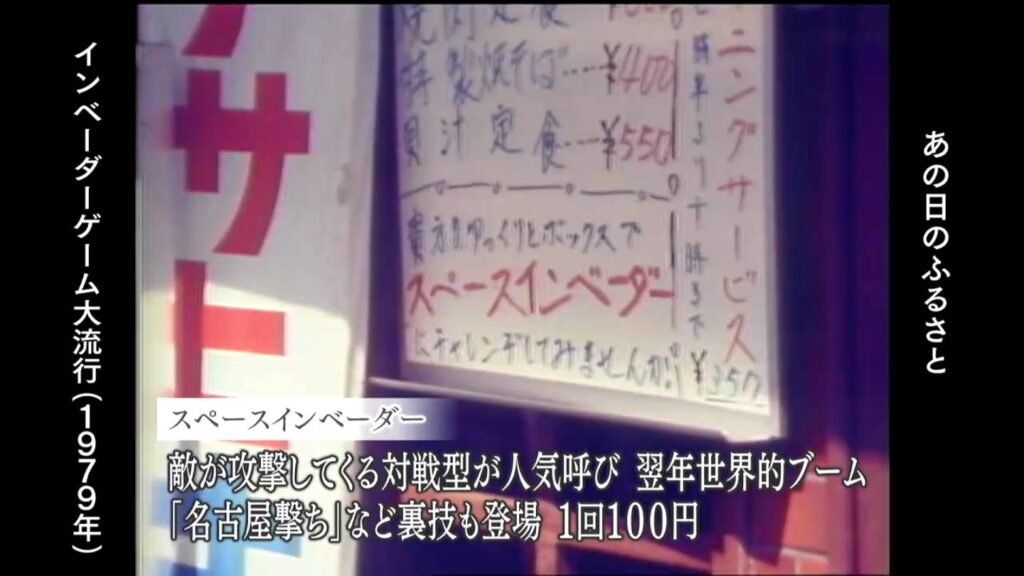 あの日のふるさと
インベーダーゲーム大流行(1979年)
特製焼そば‥‥¥400
貝汁定食‥‥¥550
貴方もゆっくりとボックスで
スペースインベーダー
にチャレンヂしてみませんか?
ニングサービス
¥350
サ
スペースインベーダー
敵が攻撃してくる対戦型が人気呼び 翌年世界的ブーム
「名古屋撃ち」など裏技も登場 1回100円